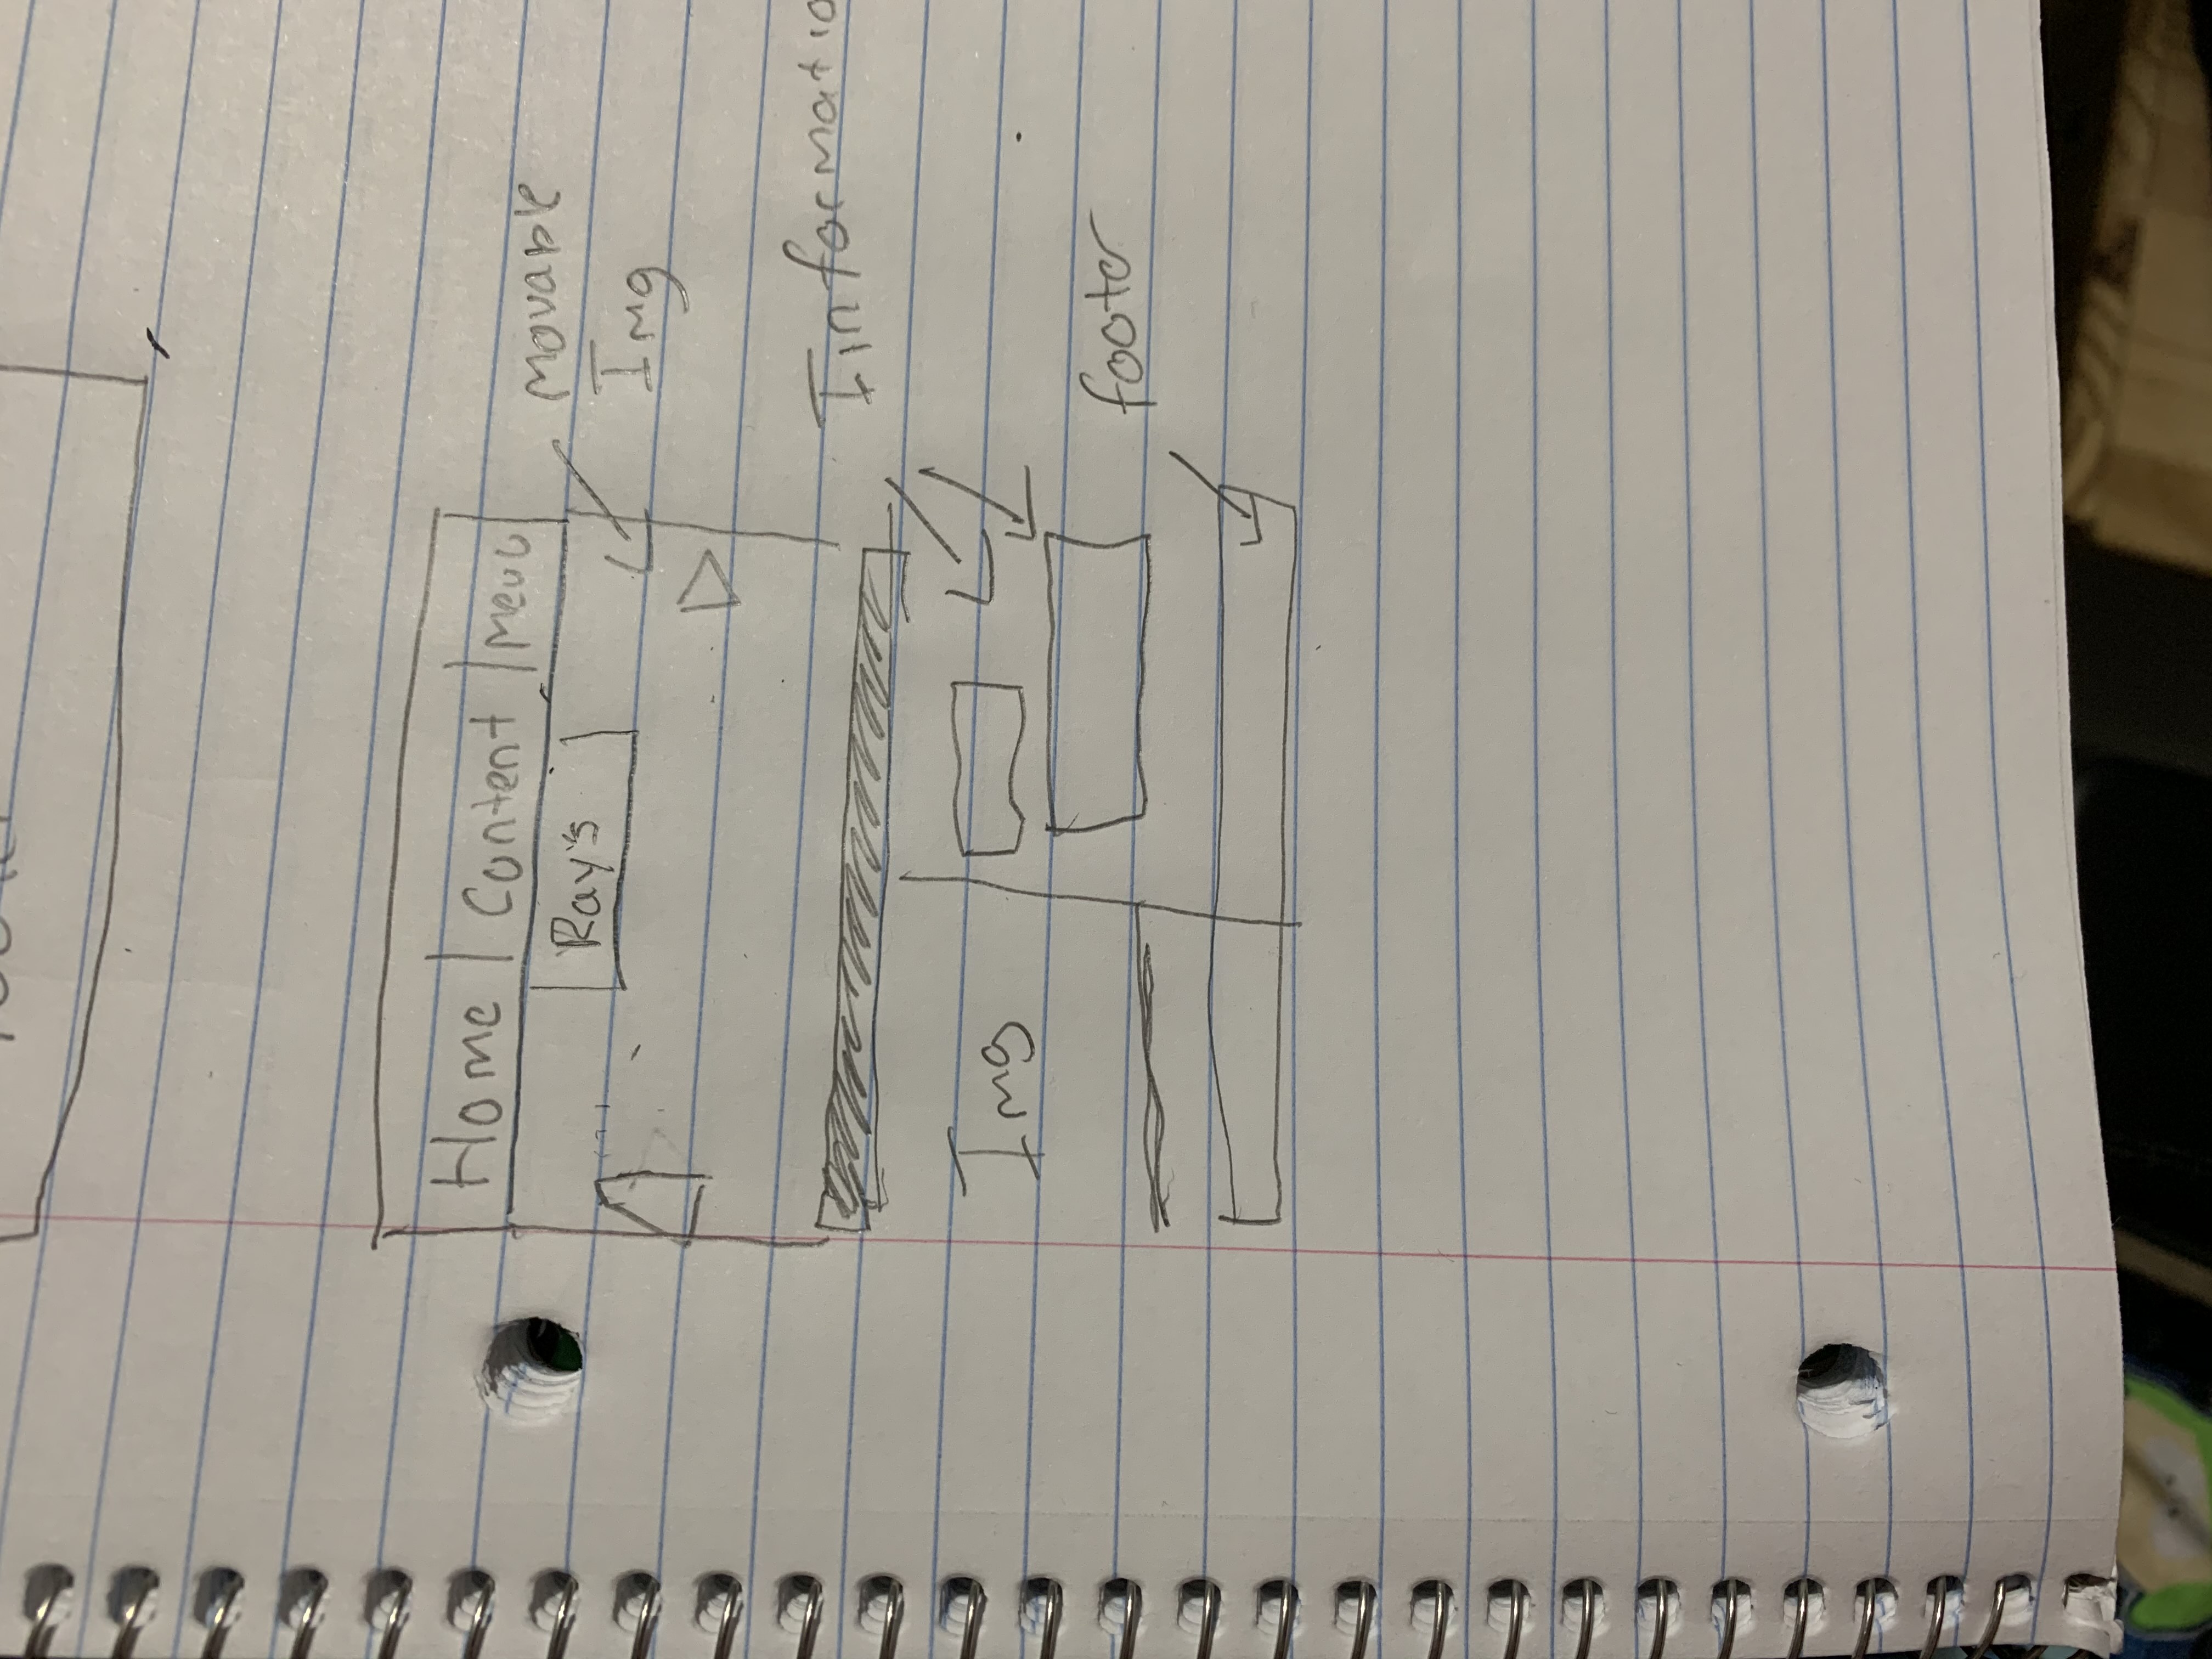 Home | Content | Menu
Ray's
Movable
Img
Iinformatio
Img
footer